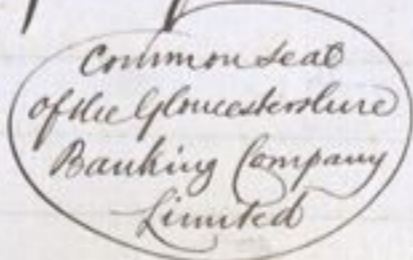 Common Seal
of the Gloucestershire
Banking Company
Limited